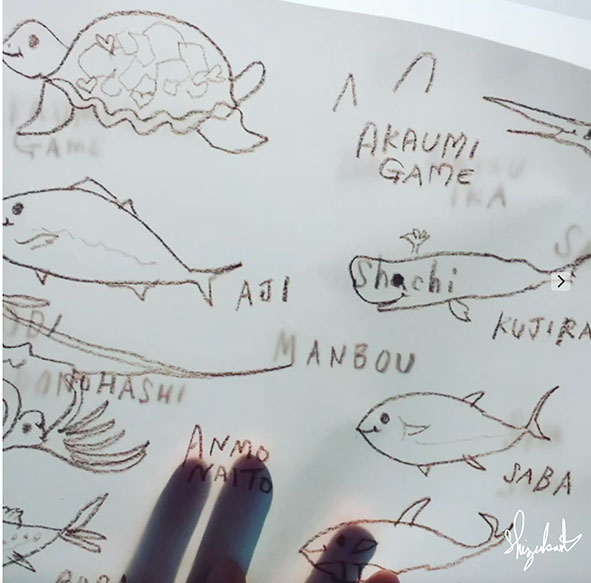 AKAUMI
GAME
GAME
IKA
AJI
Shachi
KUJIRA
MANBOU
ANMO
NAITO
SABA